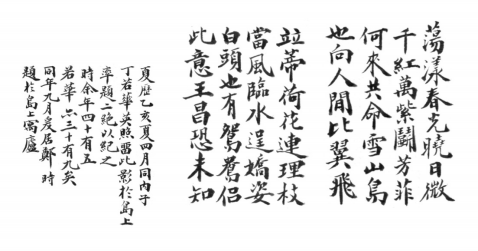 蕩漾春光曉日微
千紅萬紫鬪芳菲
何來共命雪山鳥
也向人間比翼飛
竝蒂荷花連理枝
當風臨水逞嬌姿
白頭也有鴛鴦侶
此意王昌恐未知
夏歷乙亥夏四月同內子
丁若華英照留此影於島上
率題二絕以紀之
時余年四十有五
若華亦三十有九矣
同年九月爰居鄰 時
題於島上寓廬